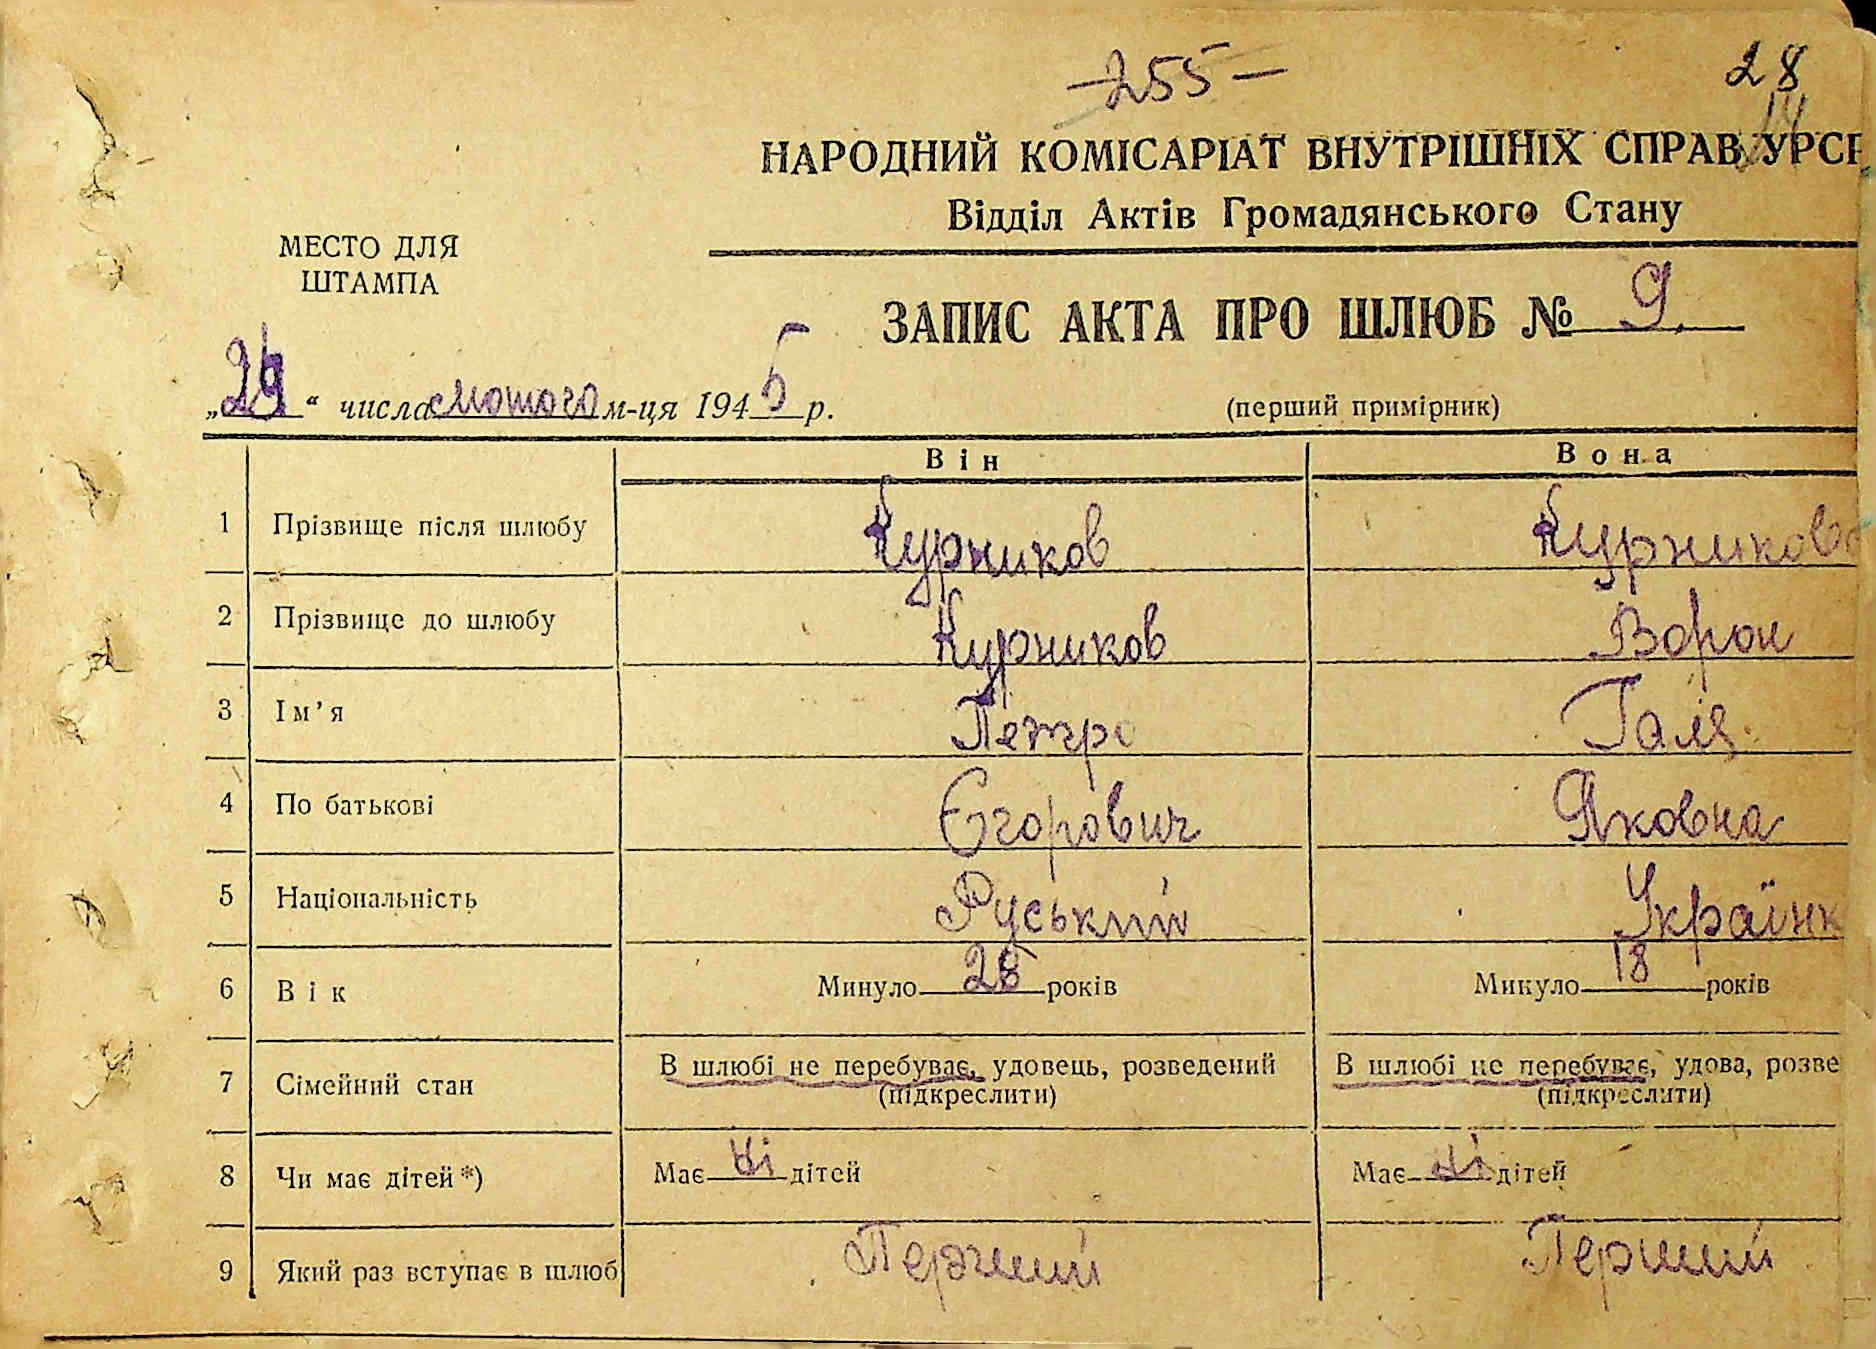 -255-
28
14
НАРОДНИЙ КОМІСАРІАТ ВНУТРІШНІХ СПРАВ УРСР
Відділ Актів Громадянського Стану
МЕСТО ДЛЯ
ШТАМПА
ЗАПИС АКТА ПРО ШЛЮБ № 9.
„ “ числа лютого м-ця 1945 р.
(перший примірник)
Він Вона
1 Прізвище після шлюбу Курников Курникова
2 Прізвище до шлюбу Курников Ворон
3 Ім’я Петро Галя
4 По батькові Єгорович Яковна
5 Національність Руський Українк
6 Вік Минуло 28 років Минуло 18 років
7 Сімейний стан В шлюбі не перебуває, удовець, розведений В шлюбі не перебуває, удова, розве
(підкреслити) (підкреслити)
8 Чи має дітей*) Має ні дітей Має ні дітей
9 Який раз вступає в шлюб Перший Перший